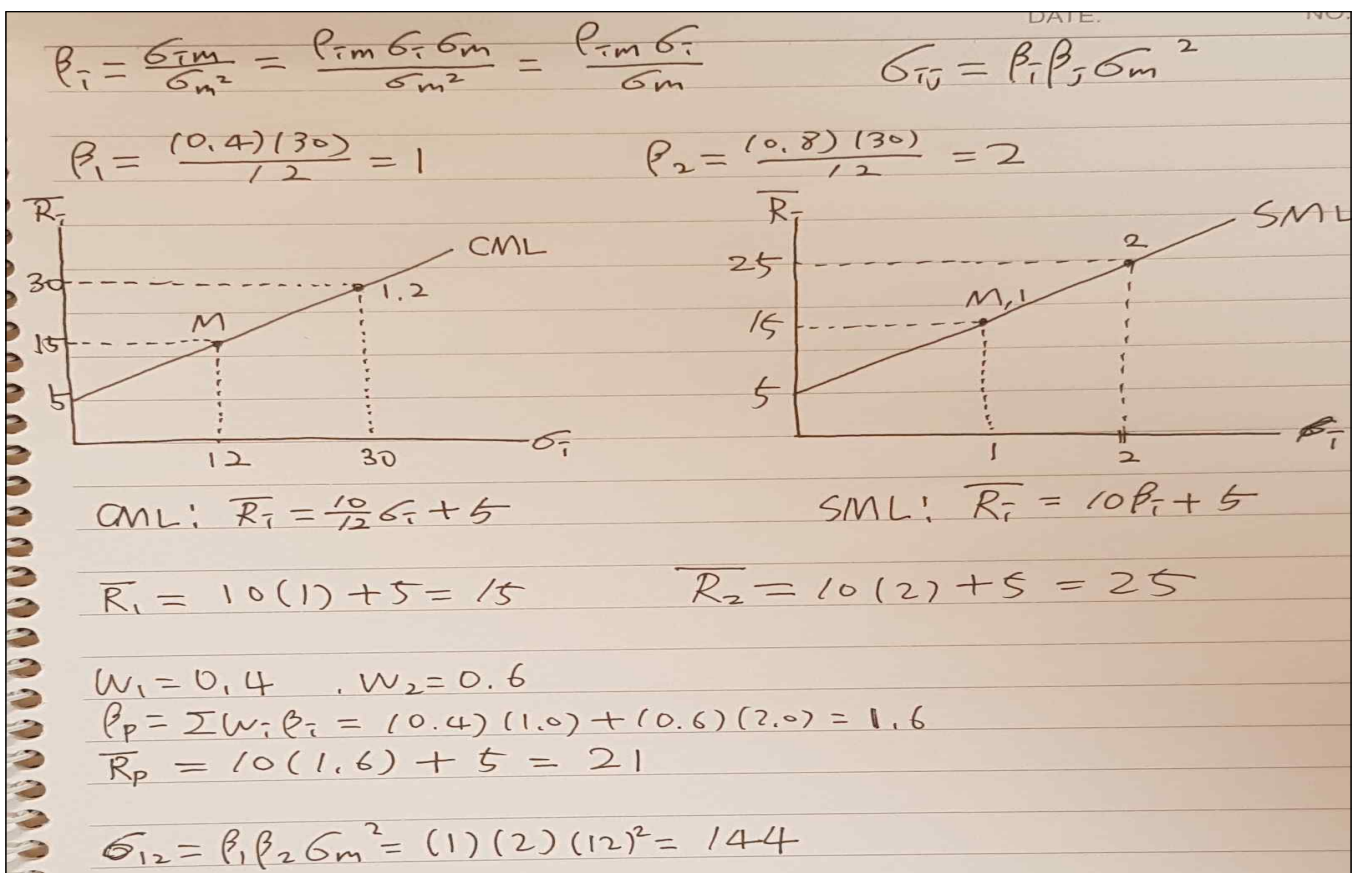 DATE. NO.
βᵢ = σᵢₘ/σₘ² = ρᵢₘ σᵢ σₘ/σₘ² = ρᵢₘ σᵢ/σₘ σᵢⱼ = βᵢ βⱼ σₘ²
β₁ = (0.4)(30)/12 = 1 β₂ = (0.8)(30)/12 = 2
R̅ᵢ
CML
30
1,2
M
15
5
12 30 σᵢ
R̅ᵢ
SML
2
25
M,1
15
5
1 2 βᵢ
CML: R̅ᵢ = 10/12 σᵢ + 5 SML: R̅ᵢ = 10βᵢ + 5
R̅₁ = 10(1) + 5 = 15 R̅₂ = 10(2) + 5 = 25
W₁ = 0.4 , W₂ = 0.6
βₚ = ΣWᵢβᵢ = (0.4)(1.0) + (0.6)(2.0) = 1.6
R̅ₚ = 10(1.6) + 5 = 21
σ₁₂ = β₁β₂σₘ² = (1)(2)(12)² = 144